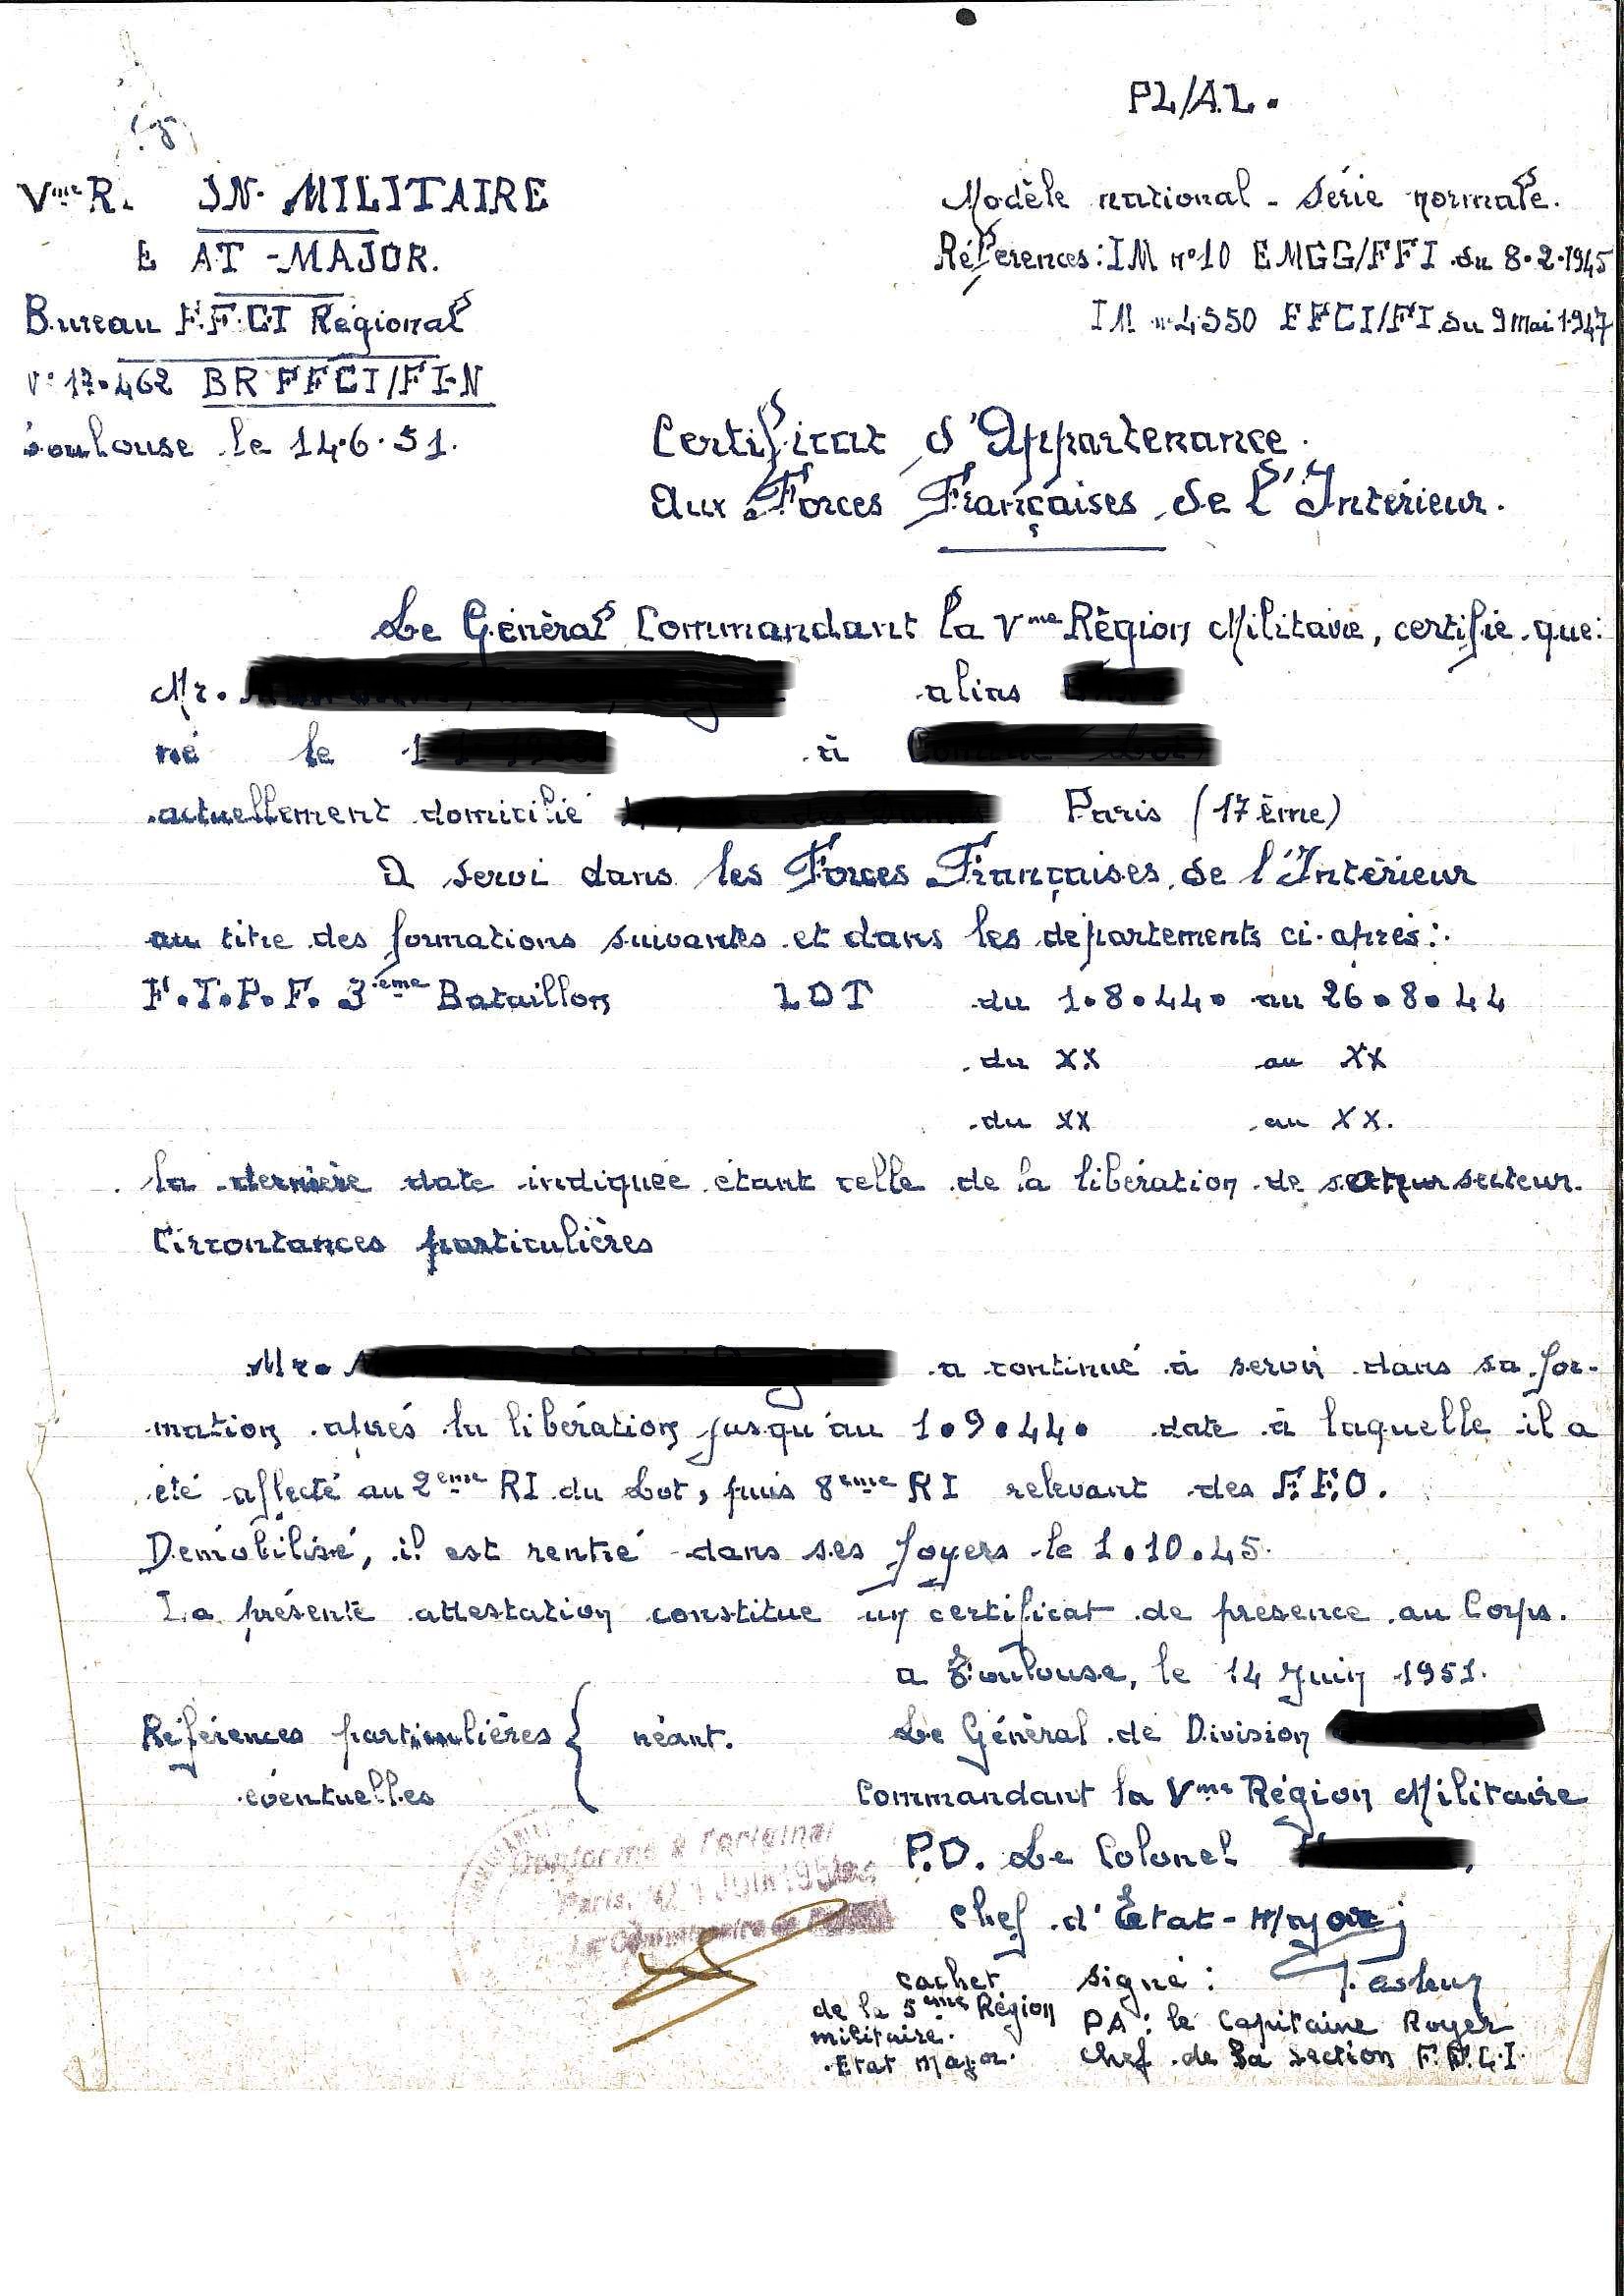 PL/AL.
Vme R. IN. MILITAIRE
E AT-MAJOR.
Bureau F.F.C.I Régional
N° 17.462 BR FFCI/FI-N
Toulouse le 14.6.51.
Modèle national - Série normale.
Références: IM n°10 EMGG/FFI du 8.2.1945
IM n° 4550 FFCI/FI du 9 mai 1947
Certificat d'Appartenance.
Aux Forces Françaises de l'Intérieur.
Le Général Commandant la Vme Région Militaire, certifie que:
Mr. alias
né le à
actuellement domicilié Paris (17ème)
A servi dans les Forces Françaises de l'Intérieur
au titre des formations suivantes et dans les départements ci-après:
F.T.P.F. 3ème Bataillon LOT du 1.8.44. au 26.8.44
du XX au XX
du XX au XX.
la dernière date indiquée étant celle de la libération de secteur.
Circontances particulières
Mr. a continué à servir dans sa for-
mation après la libération jusqu'au 1.9.44. date à laquelle il a
été affecté au 2ème RI du Lot, puis 8ème RI relevant des F.F.O.
Démobilisé, il est rentré dans ses foyers le 1.10.45.
La présente attestation constitue un certificat de présence au Corps.
a Toulouse, le 14 Juin 1951.
Références particulières { néant.
éventuelles
Le Général de Division
Commandant la Vme Région Militaire
P.O. Le Colonel ,
Chef d'Etat-Major
Conforme à l'original
Paris, Juin 195
Le Commissaire de
cachet
de la 5ème Région
militaire.
Etat Major.
signé:
PA: le Capitaine Royer
Chef de la section F.F.C.I.